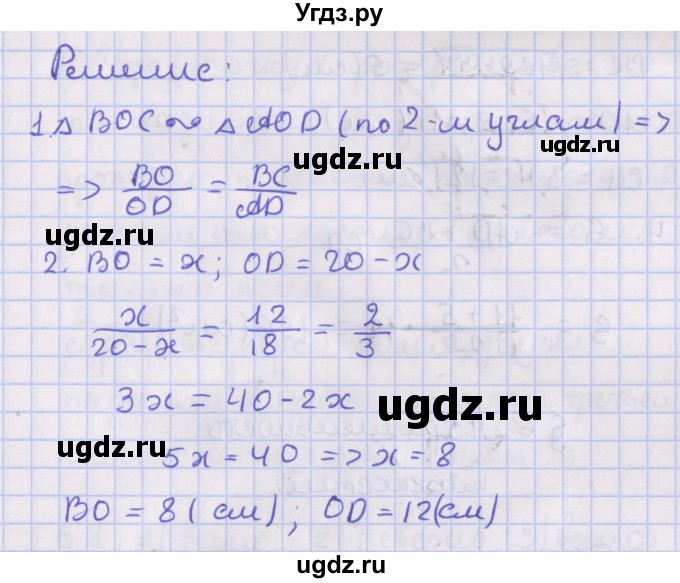 ГДЗ.ру
Решение:
1. △ BOC ~ △ AOD (по 2-м углам) =>
ugdz.ru
=> BO/OD = BC/AD
ugdz.ru
2. BO = x; OD = 20 - x
x/(20 - x) = 12/18 = 2/3
ugdz.ru
3x = 40 - 2x
ugdz.ru
5x = 40 => x = 8
ugdz.ru
BO = 8 (см); OD = 12 (см)
ugdz.ru